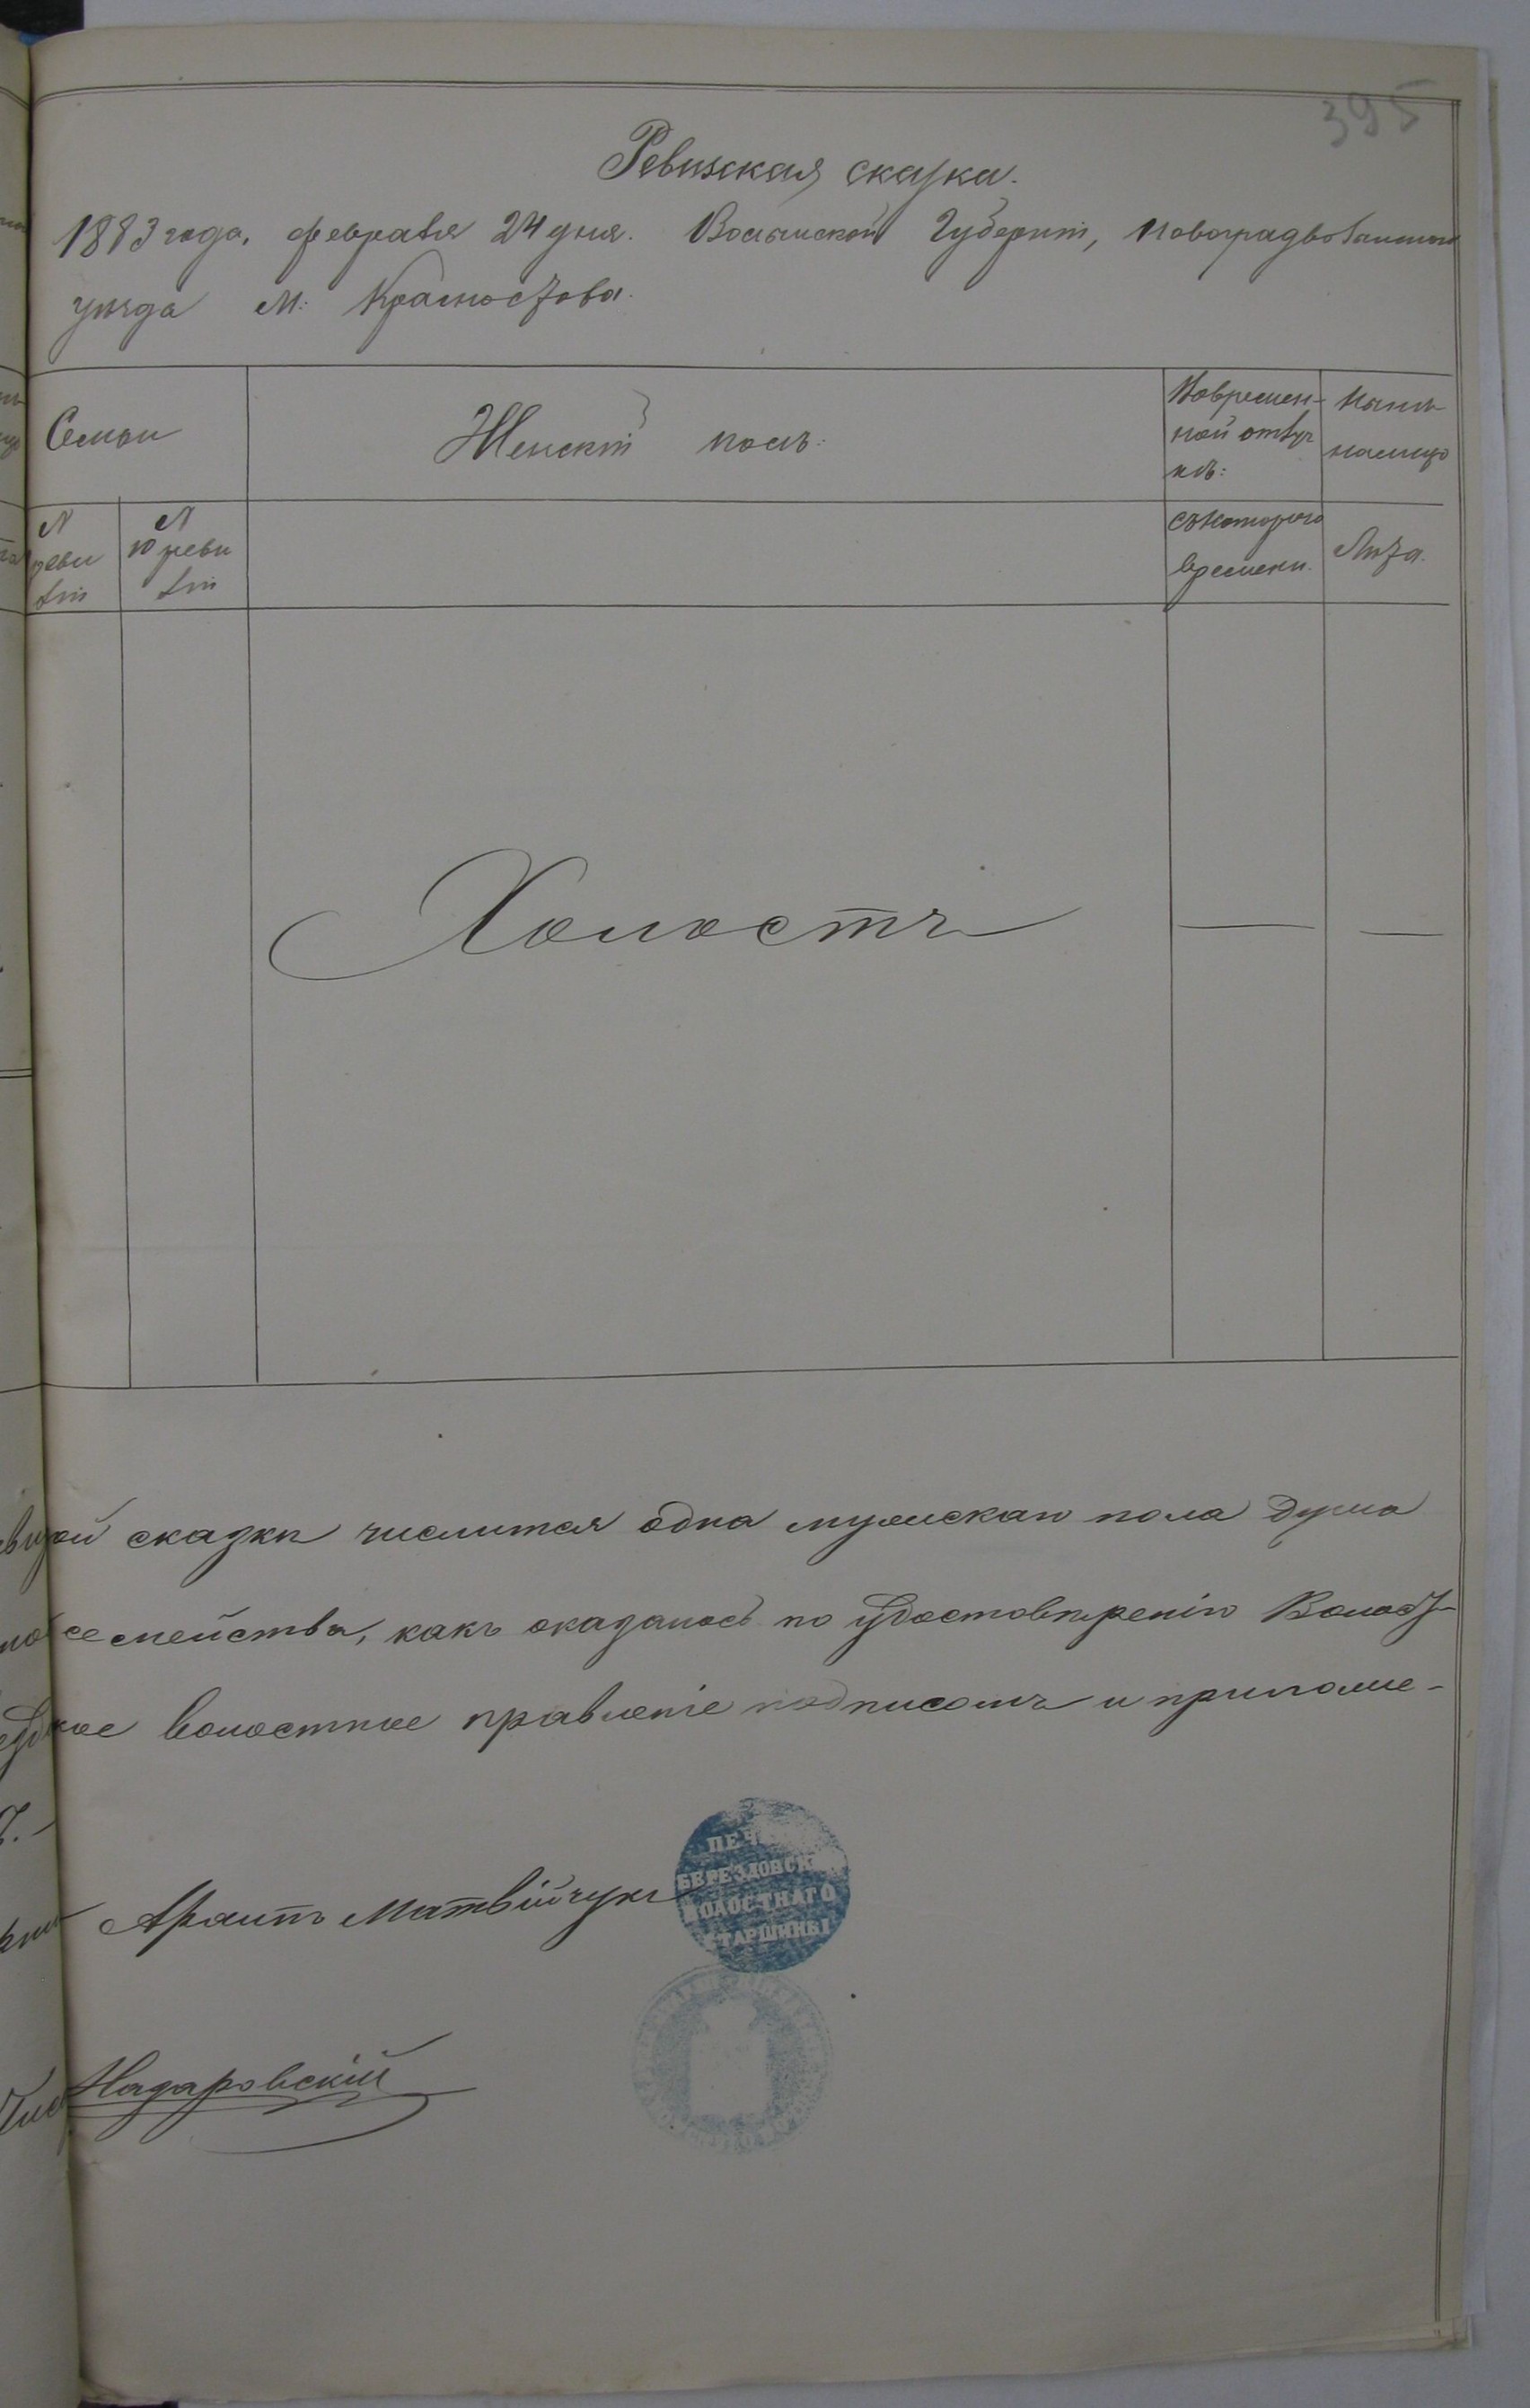 395
Ревизская сказка.
1883 года, февраля 24 дня. Волынской Губерніи, Новоградволынскаго
уѣзда м: Красностава.
Семьи
Женскій полъ:
Вовремен-
ной отлуч
кѣ:
Нынѣ
налицо
№
реви
зіи
№
10 реви
зіи
съ котораго
времени.
Лѣта.
Холостъ
сказки числится одна мужскаго пола душа
семейства, какъ оказалось по удостовѣренію Волост-
волостное правленіе подписомъ и приложе-
Матвійчукъ
ПЕЧ
БЕРЕЗДОВСК
ВОЛОСТНАГО
СТАРШИНЫ